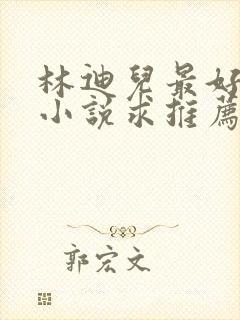 林迪兒最好
小說求推薦
郭宏文